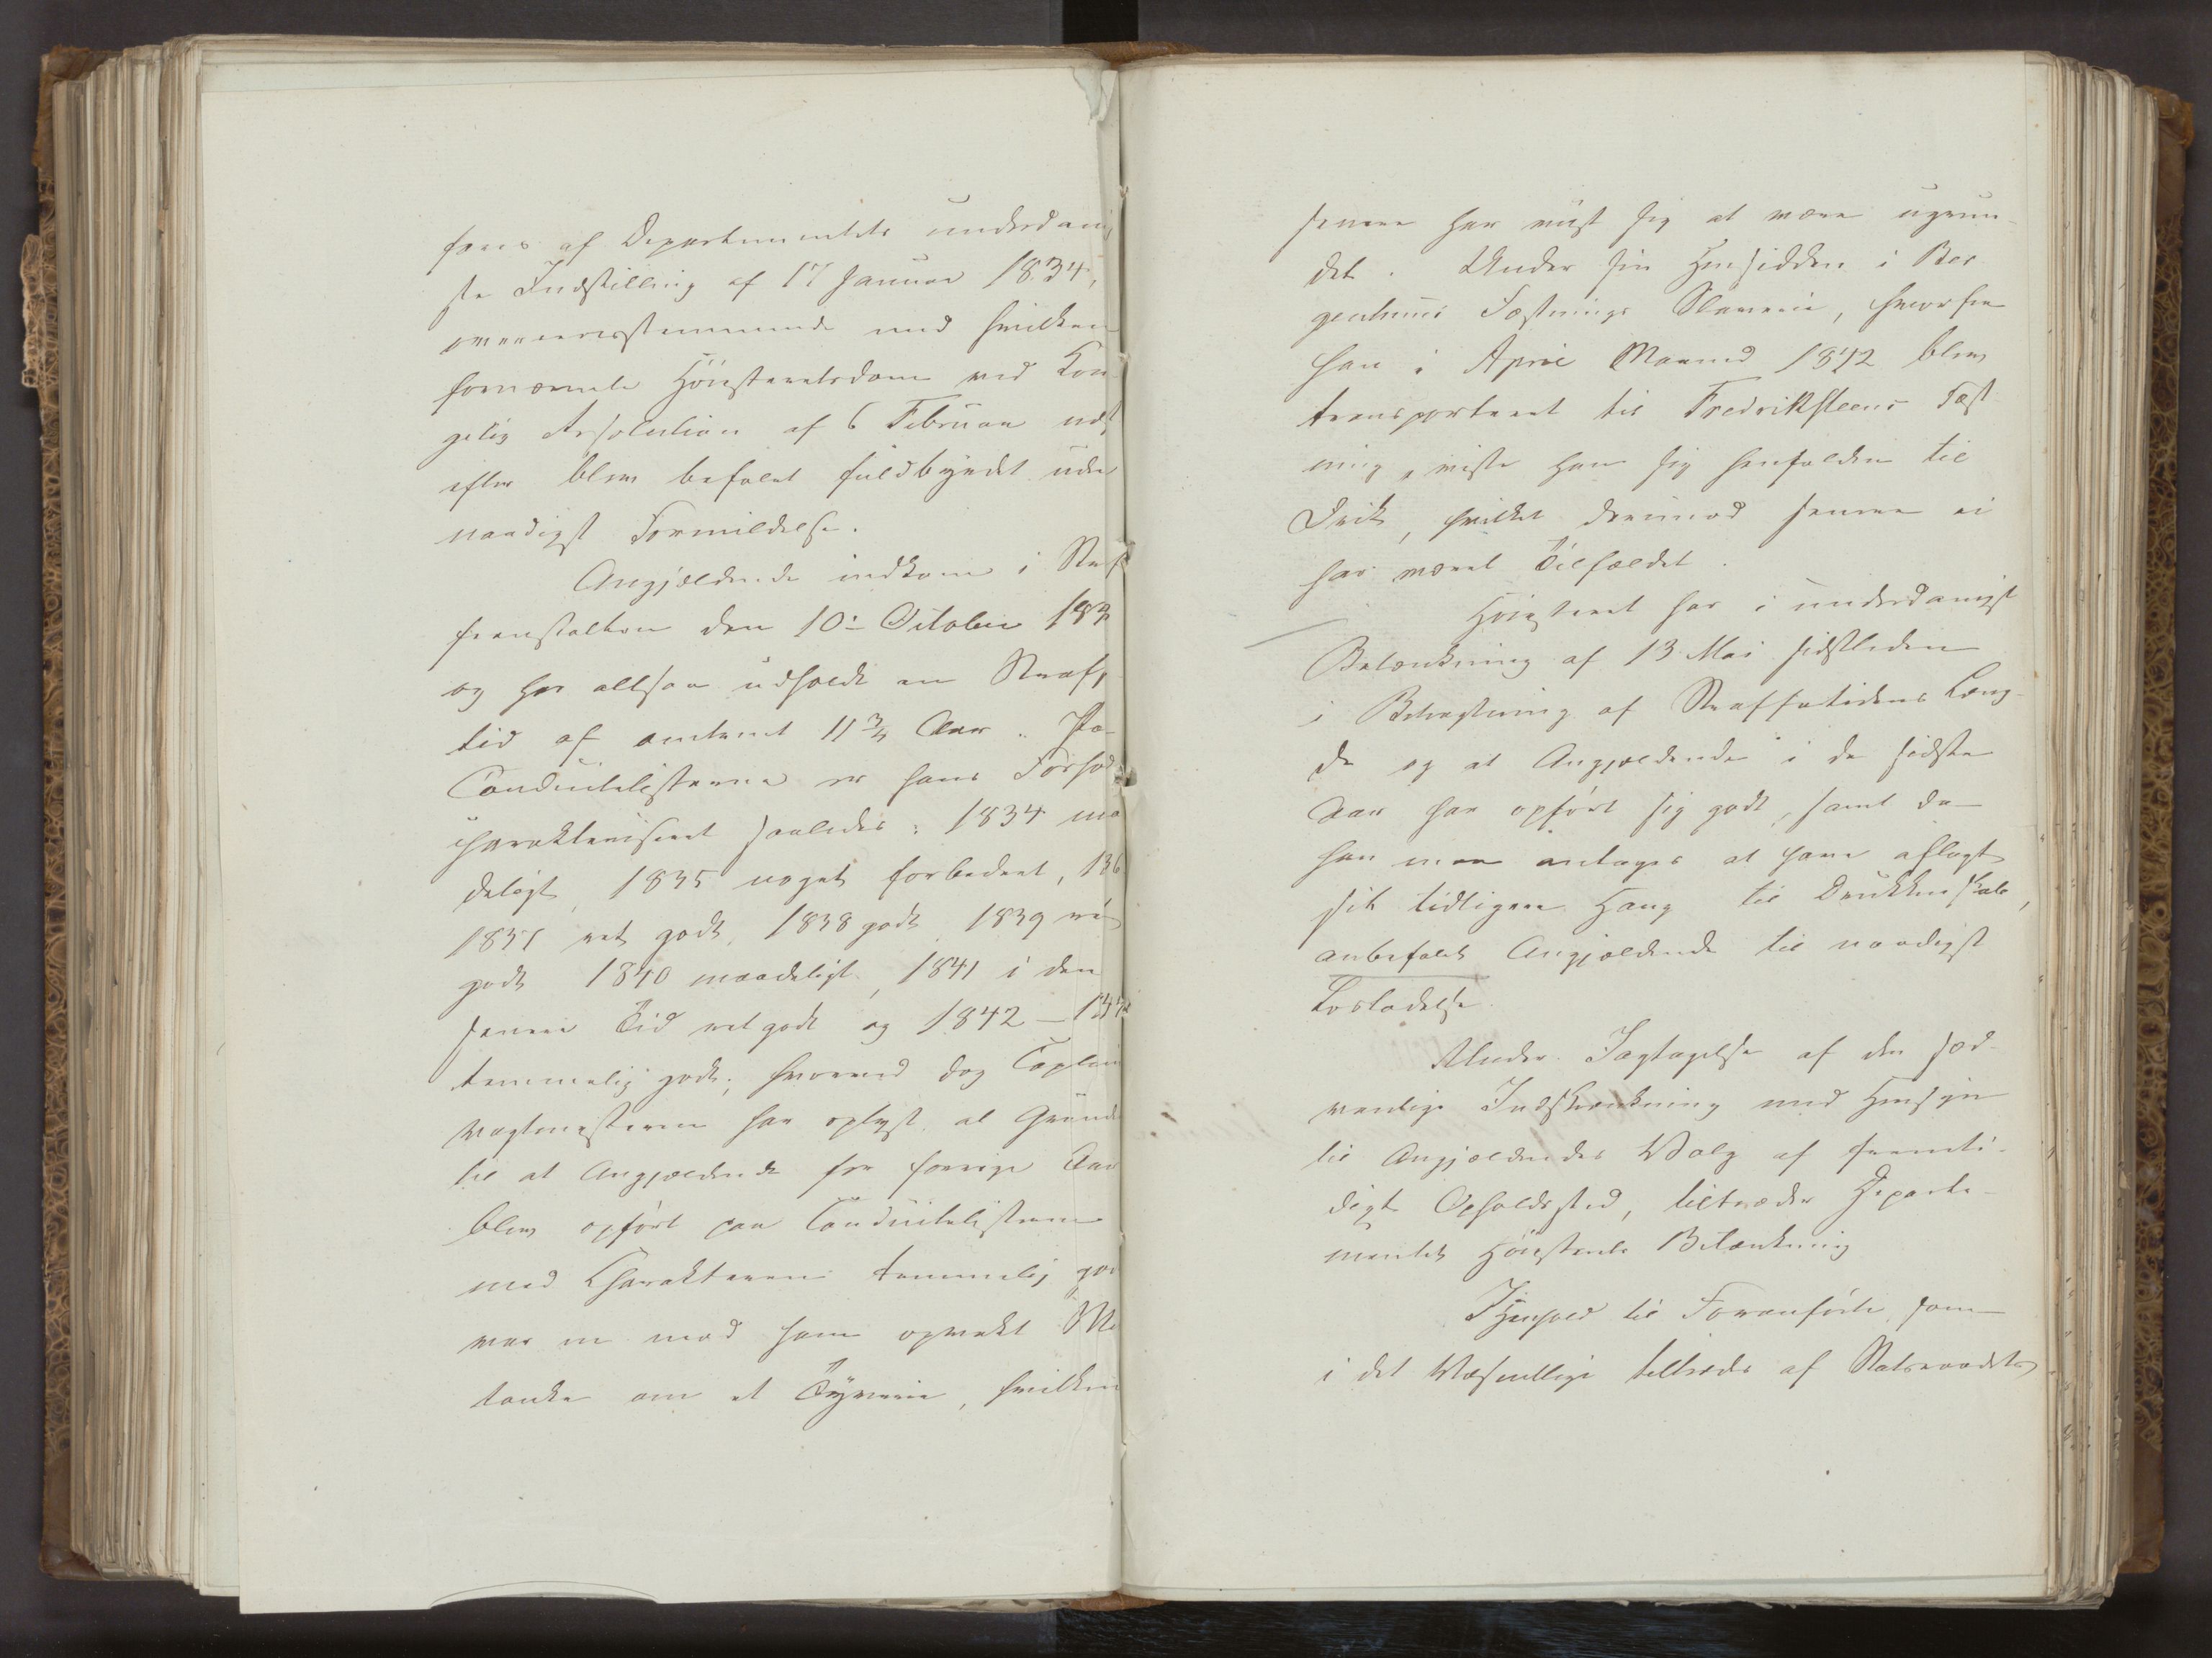 fares af Departementets underdanig
ste Indstilling af 17 Januar 1834,
overeensstemmende med hvilken
fornævnte Høiesteretsdom ved Kon-
gelig Resolution af 6 Februar næst
efter blev befalet fuldbyrdet uden
naadigst Formildelse.
Angjældende indkom i Straf
feanstalten den 10de October 183
og har altsaa udholdt en Straf,
tid af omtrent 11 3/4 Aar. Paa
Conduitelisterne er hans Forhold
charakteriseret saaledes: 1834 maa
deligt, 1835 noget forbedret, 1836
1837 ret godt, 1838 godt, 1839 ret
godt 1840 maadeligt, 1841 i den
senere Tid ret godt og 1842 – 184
temmelig godt; hvorved dog Captain
Vagtmesteren har oplyst, at Grunden
til at Angjældende for forrige Aar
blev opført paa Conduitelisterne
med Charakteren temmelig godt
var en mod ham opvakt Mis
tanke om et Tyverie, hvilken
senere har viist sig at være ugrun-
det. Under sin Hensidden i Ber
genhuus Fæstnings Slaverie, hvorfra
han i April Maaned 1842 blev
transporteret til Fredriksteens Fæst
ning, viste han sig henfalden til
Drik, hvilket derimod senere ei
har været Tilfældet.
Høiesteret har i underdanigst
Betænkning af 13 Mai sidstleden
i Betragtning af Straffetidens Læng-
de og at Angjældende i de sidste
Aar har opført sig godt, samt da
han maa antages at have aflagt
sit tidligere Hang til Drukkenskab,
anbefalet Angjældende til naadigst
Losladelse.
Under Iagtagelse af den sæd-
vanlige Indskrænkning med Hensyn
til Angjældendes Valg af fremti-
digt Opholdssted, tiltræder Departe-
mentet Høiesterets Betænkning
I Henhold til Foranførte, som
i det Væsentlige tiltrædes af Statsraadets